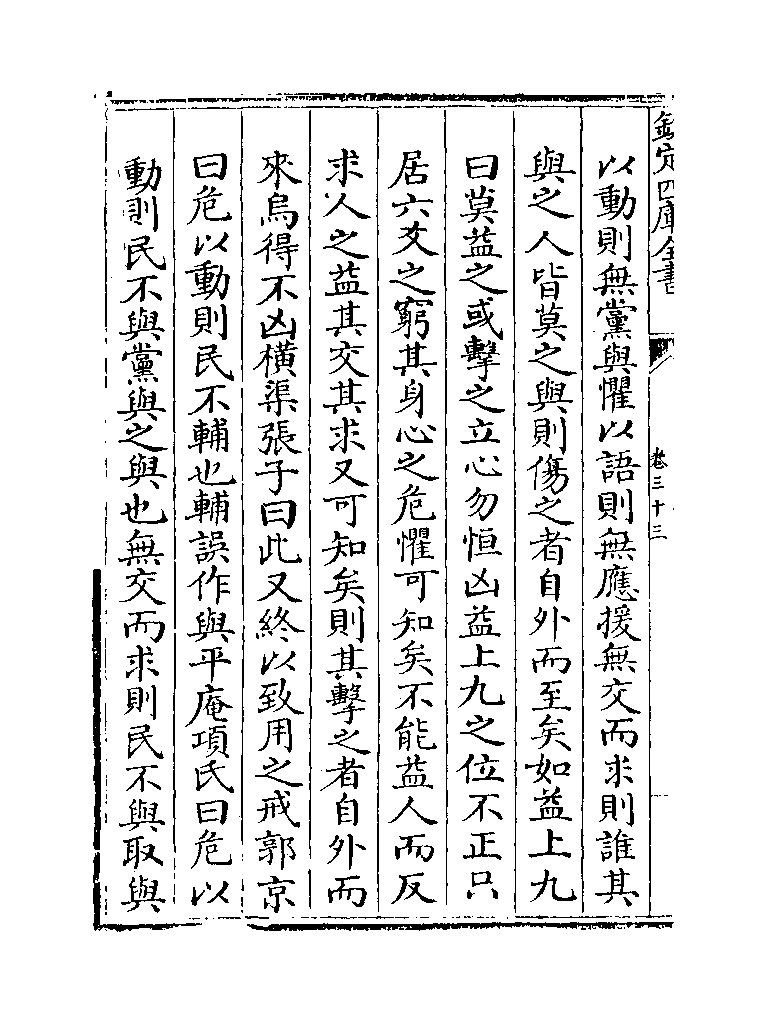 欽定四庫全書
卷三十三
以動則無黨與懼以語則無應援無交而求則誰其
與之人皆莫之與則傷之者自外而至矣如益上九
曰莫益之或擊之立心勿恒凶益上九之位不正只
居六爻之窮其身心之危懼可知矣不能益人而反
求人之益其交其求又可知矣則其擊之者自外而
來烏得不凶橫渠張子曰此又終以致用之戒郭京
曰危以動則民不輔也輔誤作與平庵項氏曰危以
動則民不與黨與之與也無交而求則民不與取與